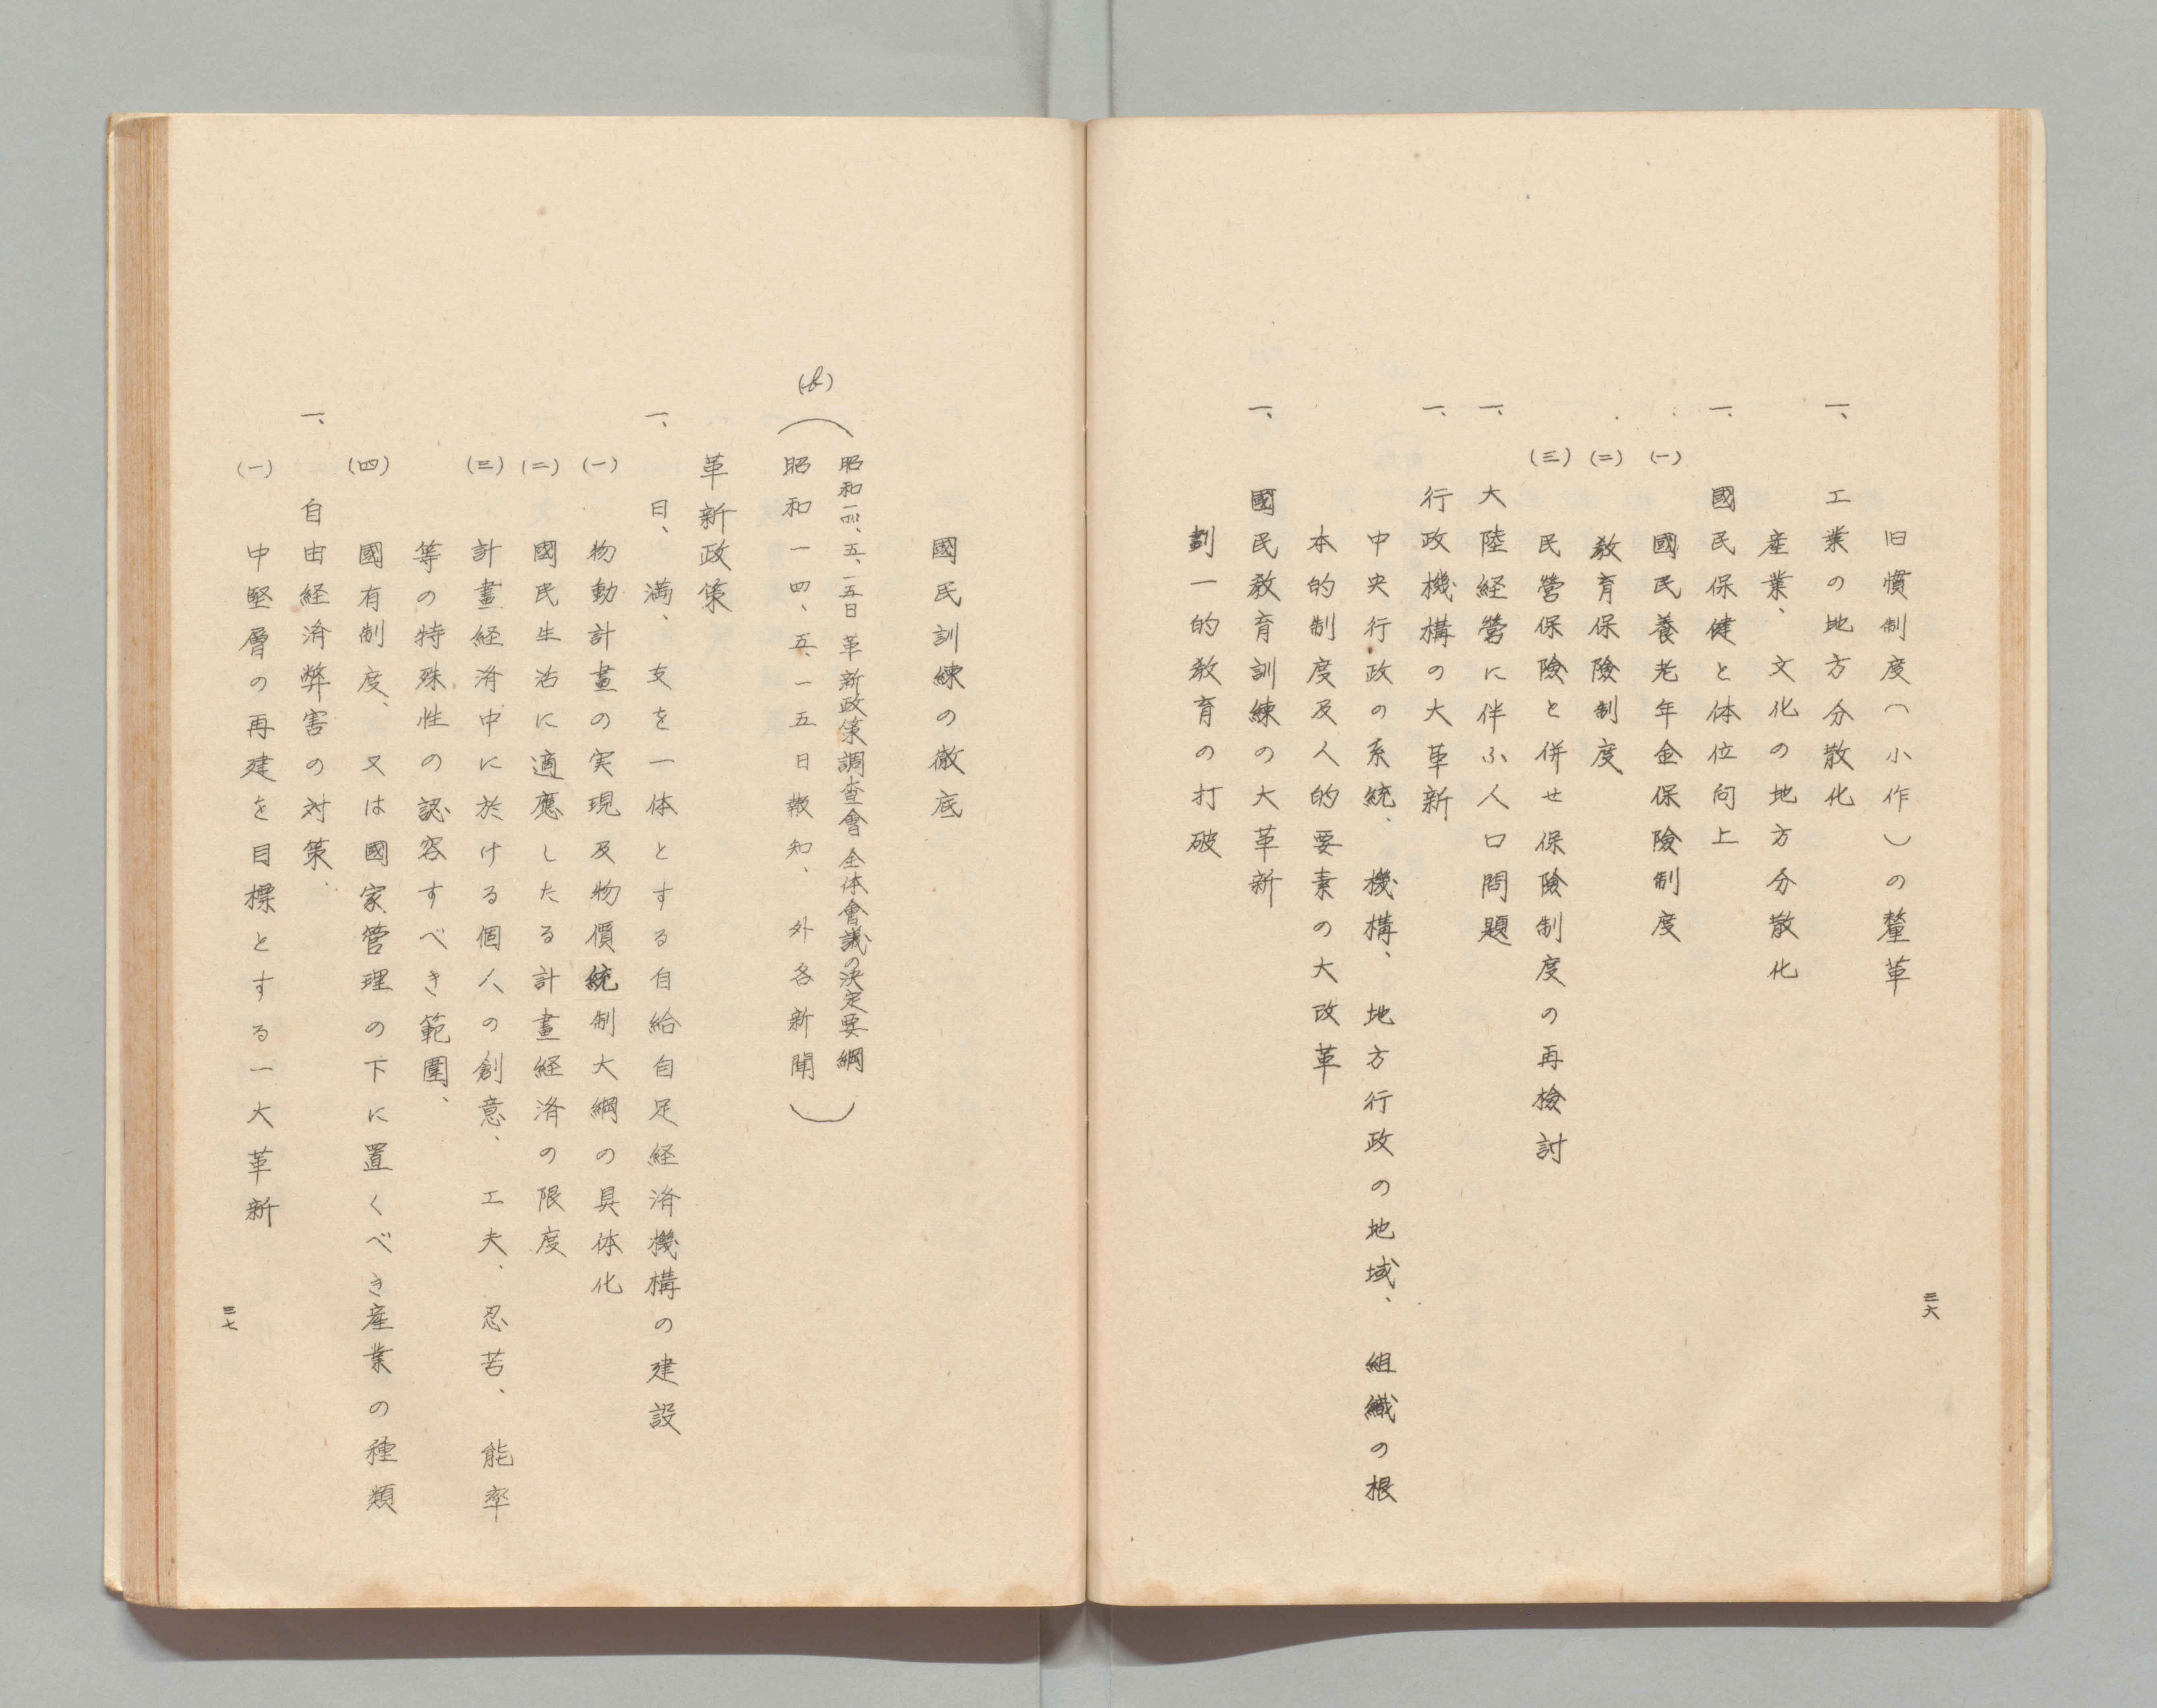 旧慣制度（小作）の釐革
一、工業の地方分散化
産業、文化の地方分散化
一、國民保健と体位向上
(一)國民養老年金保險制度
(二)教育保險制度
(三)民營保險と併せ保險制度の再檢討
一、大陸経營に伴ふ人口問題
一、行政機構の大革新
中央行政の系統、機構、地方行政の地域、組織の根
本的制度及人的要素の大改革
一、國民教育訓練の大革新
劃一的教育の打破
三六
國民訓練の徹底
(b)（昭和一四、五、一五日 革新政策調査會 全体會議の決定要綱
昭和一四、五、一五日報知、外各新聞）
革新政策
一、日、満、支を一体とする自給自足経済機構の建設
(一)物動計畫の実現及物價統制大綱の具体化
(二)國民生活に適應したる計畫経済の限度
(三)計畫経済中に於ける個人の創意、工夫、忍苦、能率
等の特殊性の認容すべき範圍、
(四)國有制度、又は國家管理の下に置くべき産業の種類
一、自由経済弊害の対策、
(一)中堅層の再建を目標とする一大革新
三七